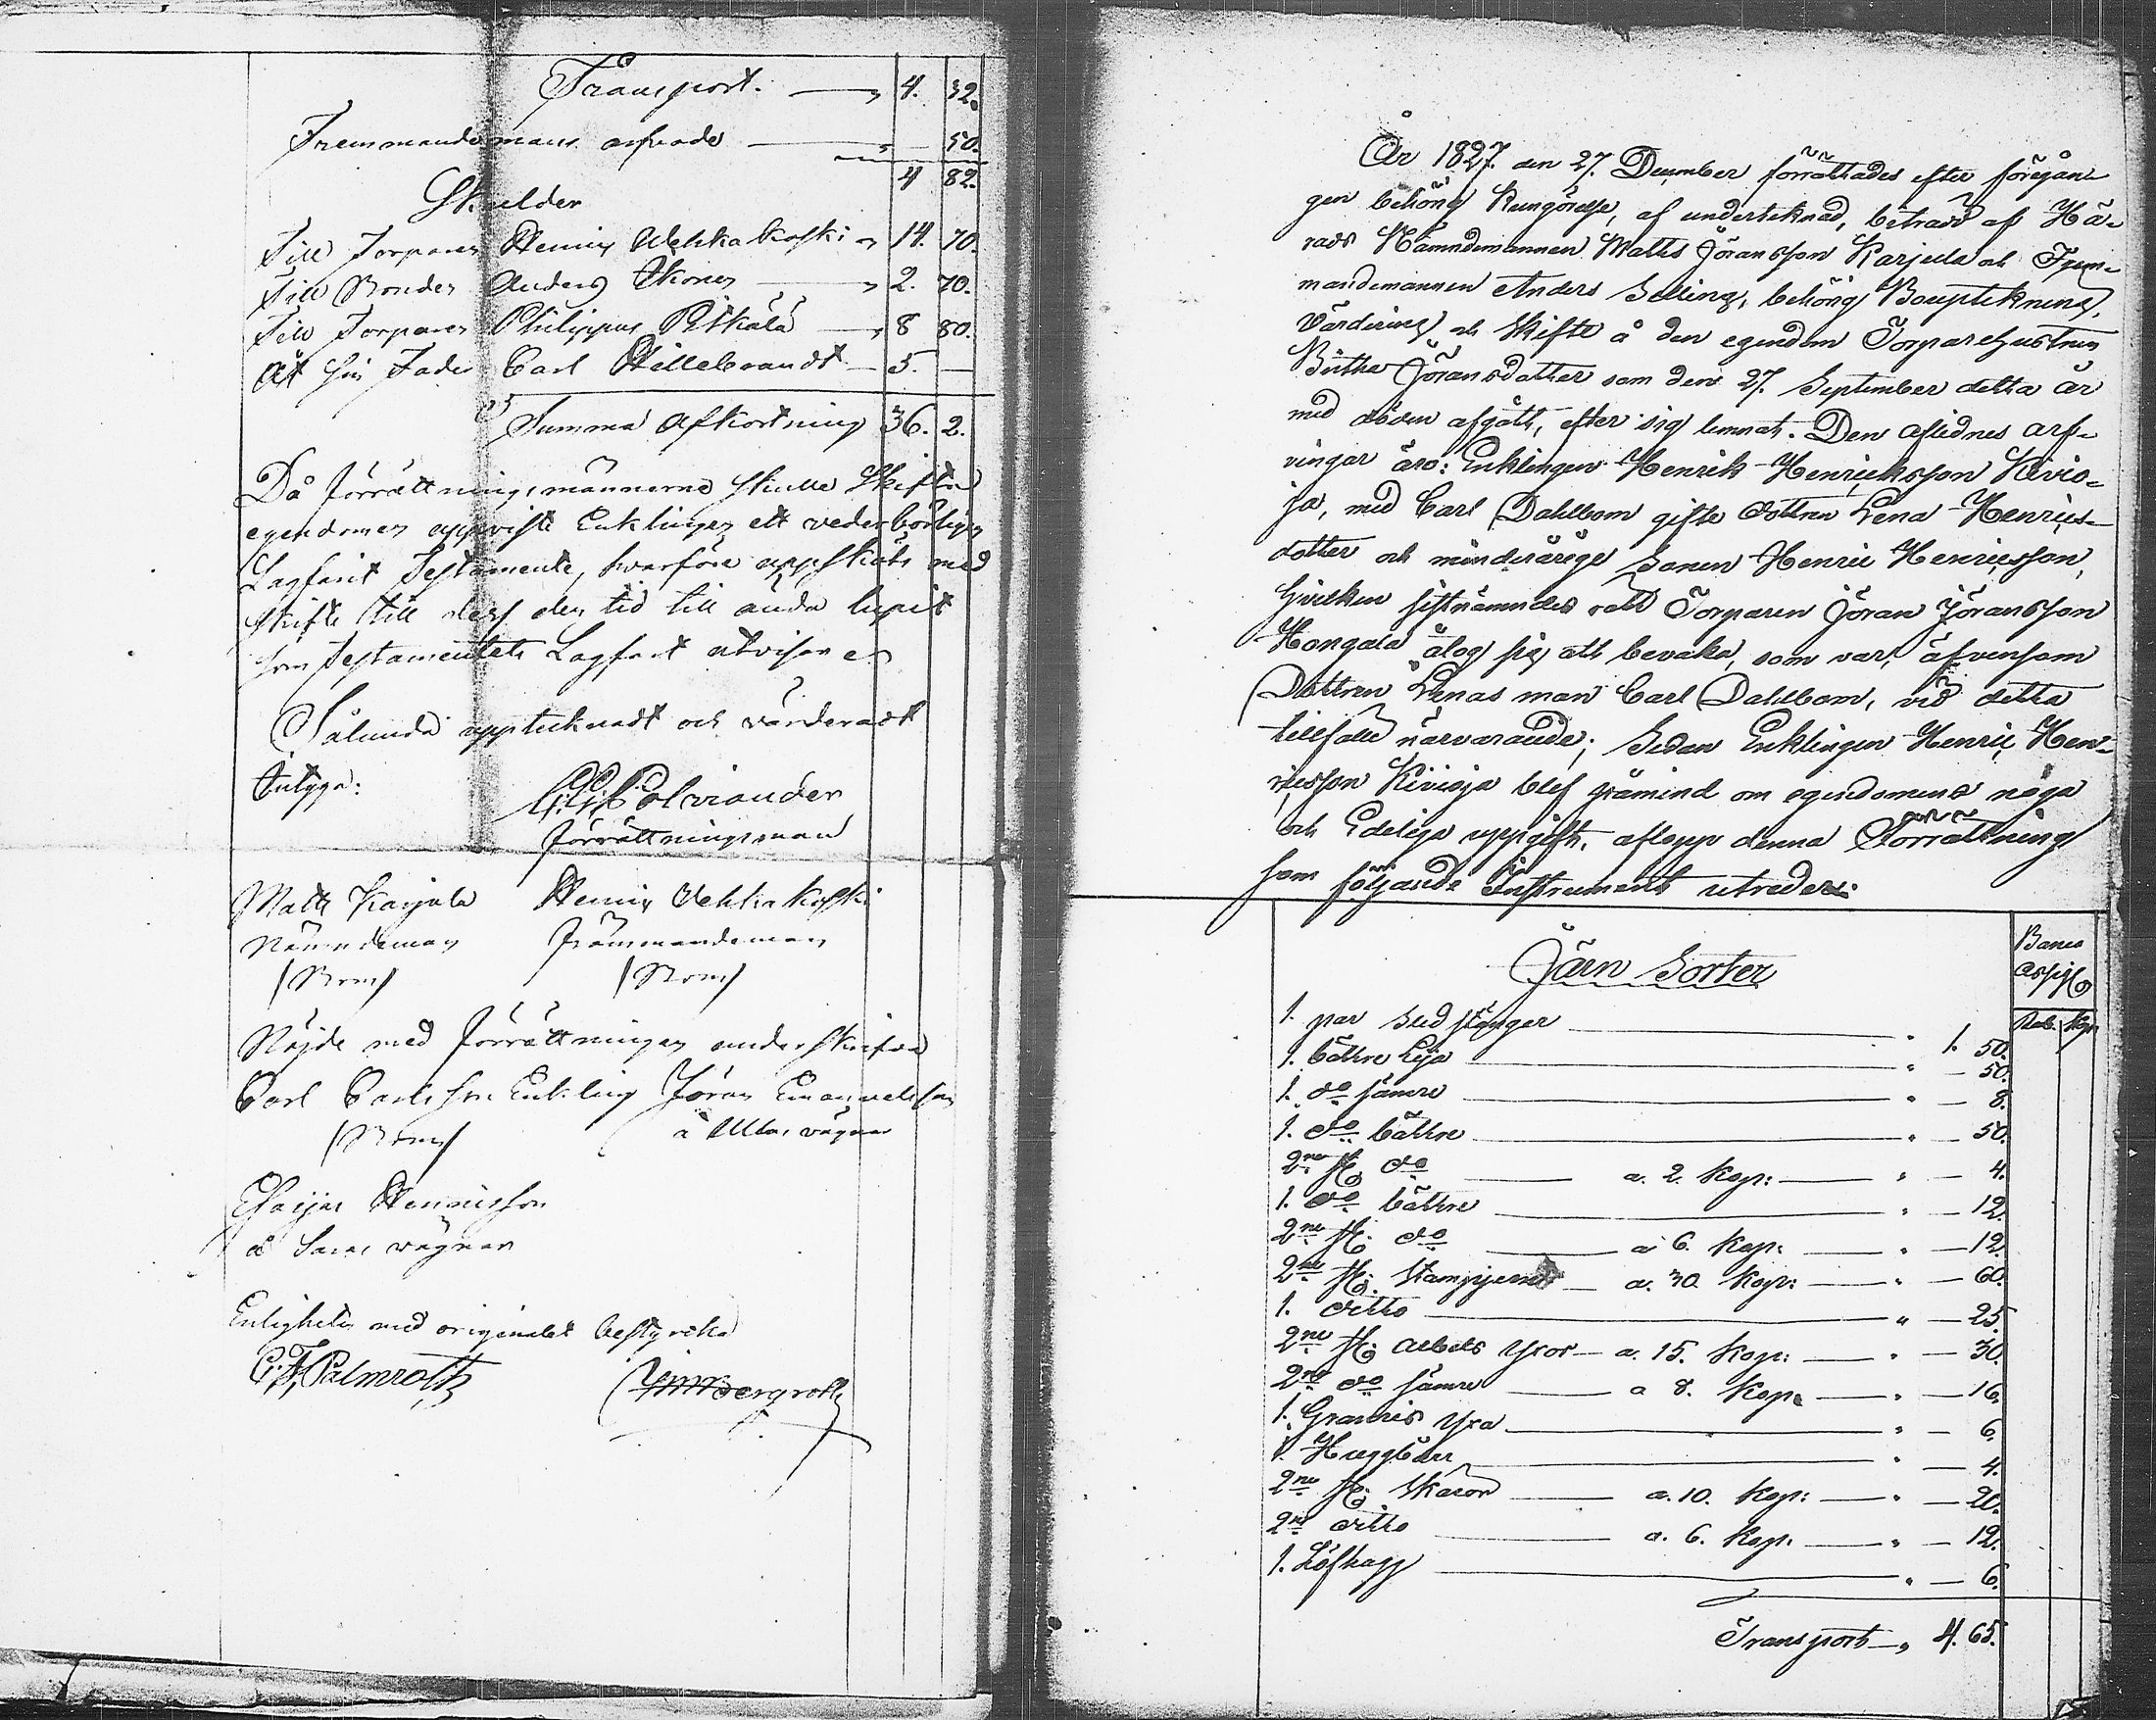 Transport. 4. 32.
Fremmande mans arfvode 50.
4 82.
Skulder
Till Torparen Henrik Vehkakoski 14. 70.
Till Bonden Anders Ikonen 2. 70.
Till Torparen Philippus Pitkälä 8 80.
Åt sin Fader Carl Hillebrandt 5. —
Summa Afkortning 36. 2.
Då förrättningsmännerne skulle skifta
egendomen uppviste Enklingen ett vederbörligen
Lagfarit Testamente, hvarföre uppsköts med
skifte till dess den tid till ända lupit
som Testamentets Lagfart utvisar
Sålunda upptecknadt och värderadt
Intyga:
Polviander
förrättningsman
Matts Karjula Henrik Vehkakoski
Nämndeman främmandeman
Nöjde med förrättningen underskrifva
Carl Carlsson Enkling Jöran Emanuelsson
å Ullas vägnar
Esaijas Henricsson
å Saras vägnar
Enligheten med originalet bestyrka
C. F. Palmroth Bergroth
År 1827. den 27. December förrättades efter föregån-
gen behörig Kungörelse, af undertecknad, biträdd af Hä-
rads Nämndemannen Matts Jöransson Karjula och Frem-
mandemannen Anders Selling, behörig Bouptekning,
Värdering och Skifte å den egendom Torparehustrun
Britha Jöransdotter som den 27. September detta år
med döden afgått, efter sig lemnat. Den aflidnes arf-
vingar äro: Enklingen Henrik Henriksson Kivio-
ja, med Carl Dahlbom gifte dottren Lena Henrics-
dotter och minderårige Sonen Henric Henricsson,
hvilken sistnämndes rätt Torparen Jöran Jöransson
Hongala åtog sig att bevaka, som var, äfvensom
Dottren Lenas man Carl Dahlbom, vid detta
tillfälle närvarande; Sedan Enklingen Henric Hen-
ricsson Kivioja blef påmind om egendomens noga
och Edeliga uppgift, aflopp denna Förrättning
som följande Instrument utreder:
Järn Sorter
Banco
Assign
Rub. Kop
1. par Sludstänger 1. 50.
1. bättre Lija — 50.
1. do sämre — 8.
1. do bättre — 50.
2ne st. do a. 2. Kop: — 4.
1. do bättre — 12.
2ne st. do a 6. Kop: — 12.
2ne st. Stampjern a. 30. Kop: — 60.
1. ditto — 25.
2ne st. arbets Yxor a. 15. Kop: — 30.
2ne do sämre a 8. Kop. — 16.
1. Yxa — 6.
1. Huggbårr — 4.
2ne st. Skäror a. 10. Kop: — 20.
2ne ditto a. 6. Kop. — 12.
1. Löfhapp — 6.
Transport 4. 65.